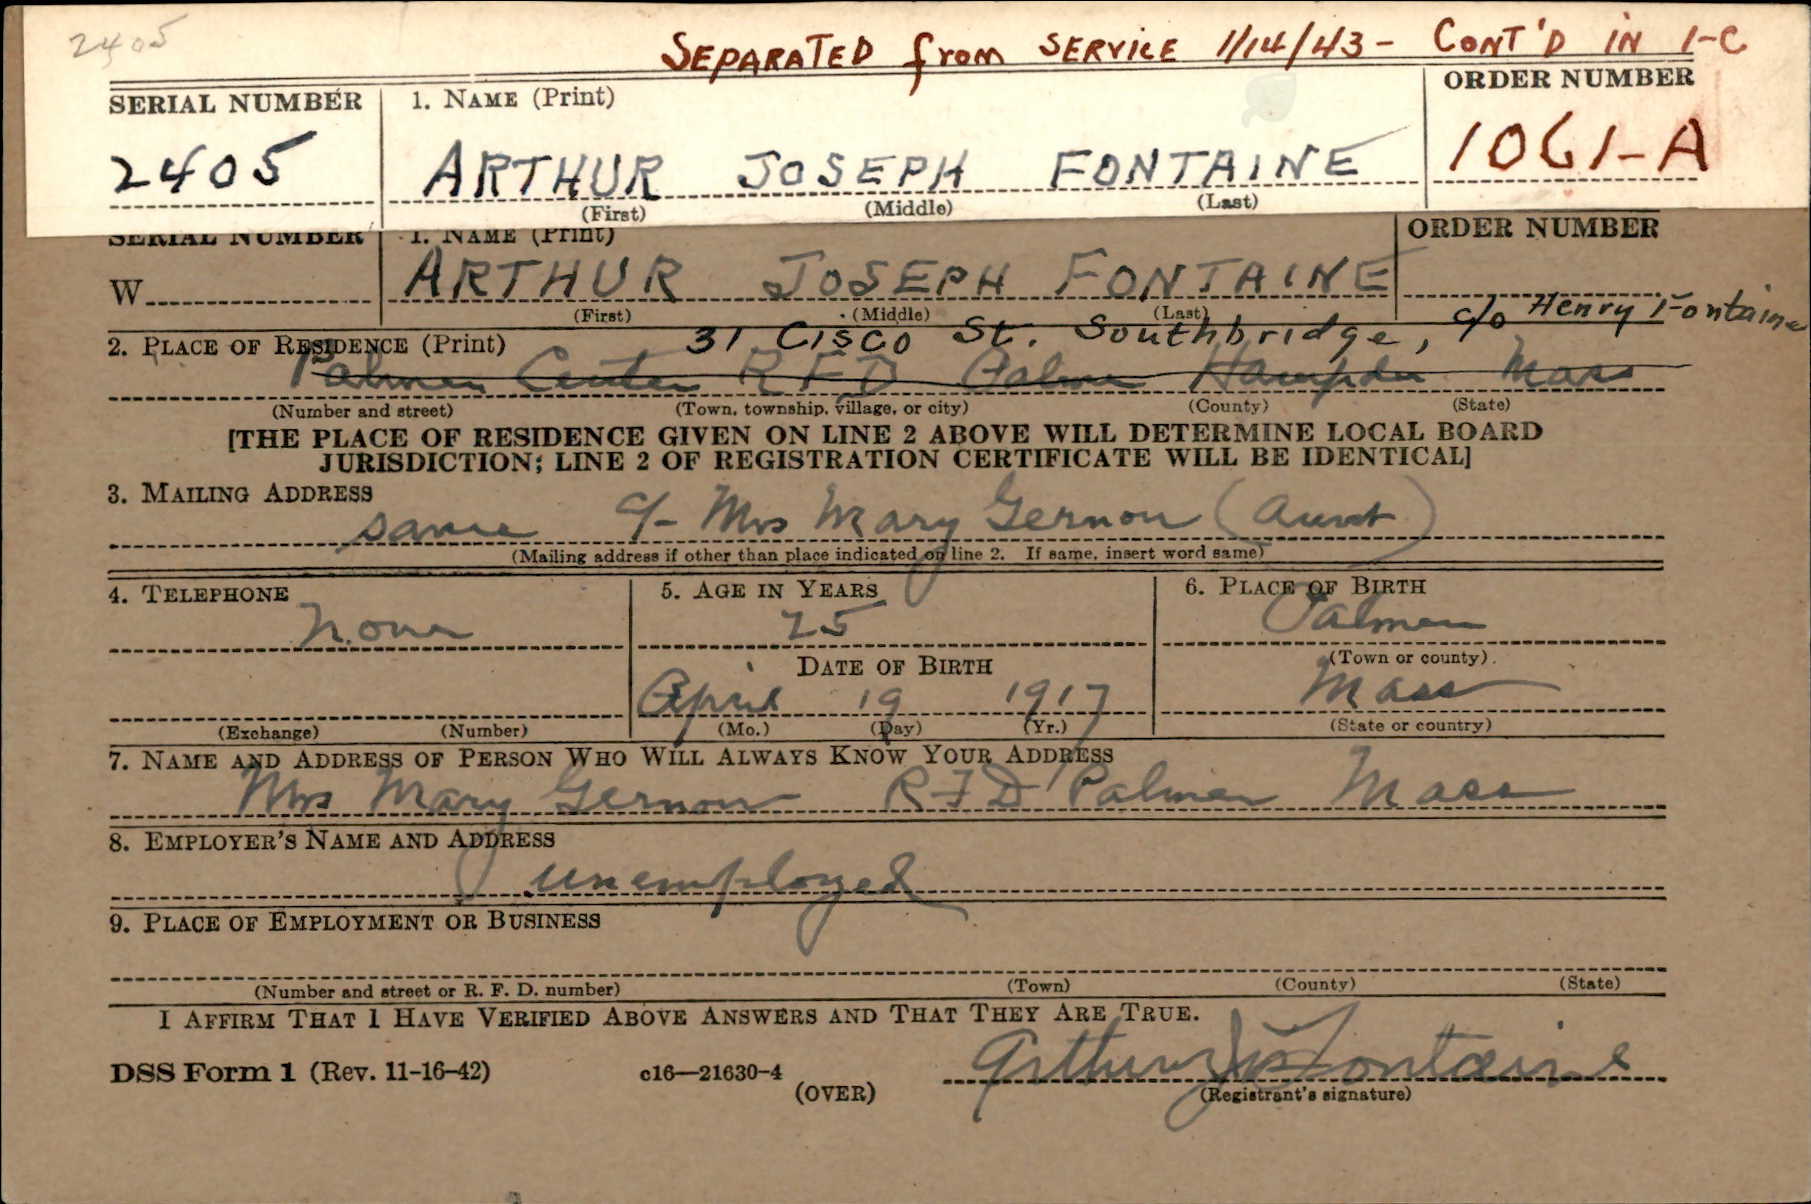 2405
SEPARATED from SERVICE 1/14/43 - CONT'D IN 1-C
SERIAL NUMBER 1. NAME (Print) ORDER NUMBER
2405 ARTHUR JOSEPH FONTAINE 1061-A
(First) (Middle) (Last)
SERIAL NUMBER 1. NAME (Print) ORDER NUMBER
W ARTHUR JOSEPH FONTAINE
(First) (Middle) (Last)
31 Cisco St. Southbridge, c/o Henry Fontaine
2. PLACE OF RESIDENCE (Print)
Palmer Center RFD Palmer Hampden Mass
(Number and street) (Town, township, village, or city) (County) (State)
[THE PLACE OF RESIDENCE GIVEN ON LINE 2 ABOVE WILL DETERMINE LOCAL BOARD
JURISDICTION; LINE 2 OF REGISTRATION CERTIFICATE WILL BE IDENTICAL]
3. MAILING ADDRESS
same c/- Mrs Mary Gernon (Aunt)
(Mailing address if other than place indicated on line 2. If same, insert word same)
4. TELEPHONE 5. AGE IN YEARS 6. PLACE OF BIRTH
None 25 Palmer
DATE OF BIRTH (Town or county)
April 19 1917 Mass
(Exchange) (Number) (Mo.) (Day) (Yr.) (State or country)
7. NAME AND ADDRESS OF PERSON WHO WILL ALWAYS KNOW YOUR ADDRESS
Mrs Mary Gernon RFD Palmer Mass
8. EMPLOYER'S NAME AND ADDRESS
unemployed
9. PLACE OF EMPLOYMENT OR BUSINESS
(Number and street or R. F. D. number) (Town) (County) (State)
I AFFIRM THAT I HAVE VERIFIED ABOVE ANSWERS AND THAT THEY ARE TRUE.
DSS Form 1 (Rev. 11-16-42) c16—21630-4 Arthur J Fontaine
(OVER) (Registrant's signature)